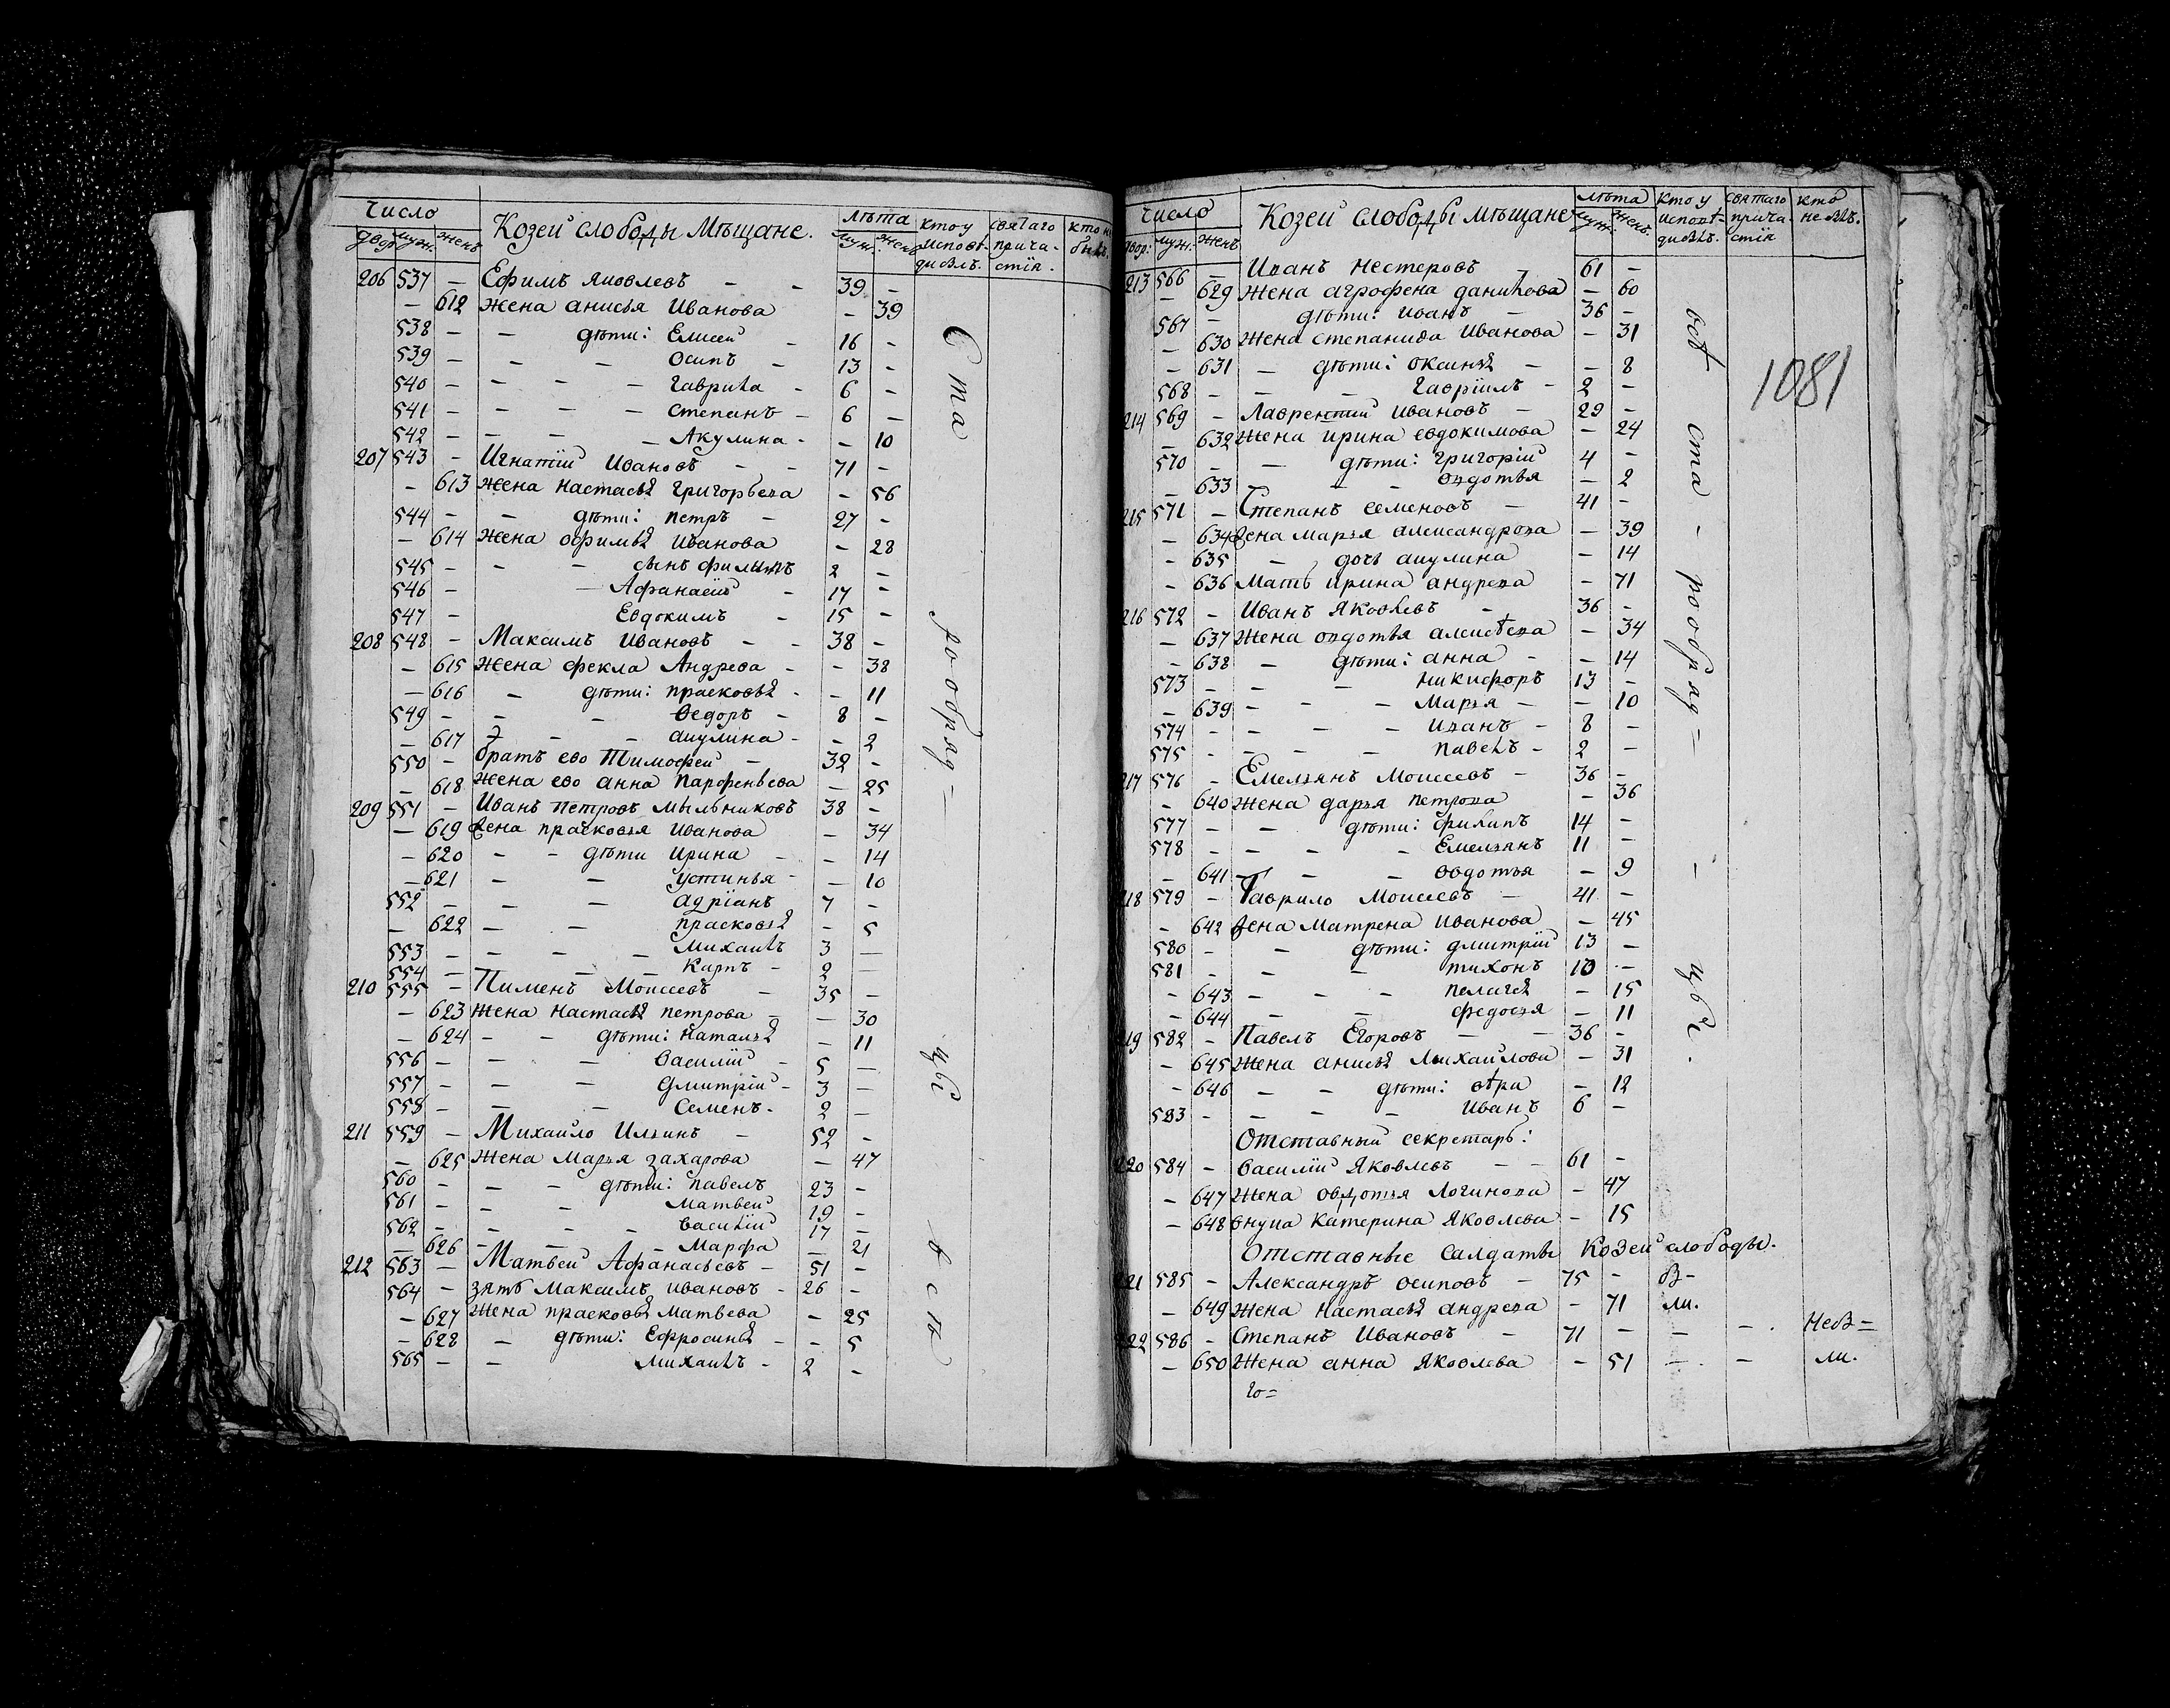 Число Козей слободы Мѣщане. лѣта кто у святаго кто н
двор. муж. женъ муж. жен. исповѣ- прича- былъ.
дивлъ. стія.
206 537 — Ефимъ Яковлевъ — — 39 —
— 612 жена анисья Иванова — 39
538 — — дѣти: Елисей — 16 —
539 — — — Осипъ — 13 —
540 — — — — гаврила — 6 —
541 — — — — степанъ — 6 —
542 — — — — Акулина — — 10
207 543 — Игнатій Ивановъ — — 71 —
— 613 жена настасья григорьева — 56
544 — — дѣти: петръ — 27 —
— 614 жена офимья Иванова — 28
545 — — — сынъ филипъ 2 —
546 — — Афанасей — 17 —
547 — Евдокимъ — 15 —
208 548 — Максимъ Ивановъ — — 38 —
— 615 жена фекла Андрева — — 38
— 616 — дѣти: прасковья — — 11
549 — — — Ѳедоръ — 8 —
— 617 — — акулина — — 2
550 — братъ ево Тимофей — 32 —
— 618 жена ево анна Парфеньева — 25
209 551 — Иванъ петровъ мыльниковъ 38 —
— 619 жена прасковья Иванова — 34
— 620 — — дѣти Ирина — — 14
— 621 — — устинья — — 10
552 — — — адріанъ 7 —
— 622 — — прасковья — 5
553 — — — — михаилъ 3 —
554 — — — — Карпъ — 2
210 555 — Пименъ Моисеевъ — 35 —
— 623 жена настасья петрова — — 30
— 624 — — дѣти: наталья — 11
556 — — — василій — 5 —
557 — — — дмитрій — 3 —
558 — — — семенъ — 2 —
211 559 — Михайло Ильинъ — 52 —
— 625 жена марья захарова — 47
560 — — — дѣти: павелъ 23 —
561 — — — матвей 19 —
562 — — — — василій 17 —
— 626 — — — Марфа — 21
212 563 — Матвей Афанасьевъ — 51 —
564 — зять Максимъ ивановъ — 26 —
— 627 жена прасковья матвева — 25
— 628 — дѣти: Ефросинья — — 5
565 — — михаилъ — 2 —
Число Козей слободы мѣщане лѣта кто у святаго кто
двор: муж: женъ муж: женъ. исповѣ- прича- не былъ.
дивлъ. стія
213 566 — Иванъ Нестеровъ — 61 —
— 629 жена агрофена данилова — 60
567 — дѣти: иванъ — 36 —
— 630 жена степанида Иванова — 31
— 631 — дѣти: Оксинья — — 8
568 — — — гавріилъ — 2 —
214 569 — Лаврентий Ивановъ — 29 —
— 632 жена ирина евдокимова — 24
570 — — дѣти: григорій 4 —
— 633 — — — овдотья — 2
215 571 — Степанъ семеновъ — 41 —
— 634 жена марья александрова — 39
— 635 — дочь акулина — 14
— 636 Мать ирина андрева — 71
216 572 — Иванъ Яковлевъ — 36 —
— 637 жена овдотья алексѣева — 34
— 638 — дѣти: анна — — 14
573 — — — никифоръ 13 —
— 639 — — — Марья — — 10
574 — — — — иванъ — 8 —
575 — — — — павелъ — 2 —
217 576 — Емельянъ Моисеевъ — 36 —
— 640 жена дарья петрова — 36
577 — — дѣти: филипъ 14 —
578 — — — — Емельянъ 11 —
— 641 — — — овдотья — 9
218 579 — Гаврило Моисеевъ — 41 —
— 642 жена Матрена Иванова — 45
580 — — дѣти: дмитрій 13 —
581 — — — тихонъ 10 —
— 643 — — — пелагея — 15
— 644 — — федосья — 11
219 582 — Павелъ Егоровъ — — 36 —
— 645 жена анисья Михайлова — 31
— 646 — — дѣти: вѣра — 12
583 — — — — Иванъ 6 —
Отставный секретарь:
220 584 — василій Яковлевъ — — 61 —
— 647 жена овдотья логинова — 47
— 648 внука Катерина Яковлева — 15
Отставные салдаты Козей слободы.
221 585 — Александръ осиповъ — 75 — бы-
— 649 жена настасья андрева — 71 ли.
222 586 — степанъ Ивановъ — 71 — — — Небы=
— 650 жена анна Яковлева — 51 — — ли.
1081